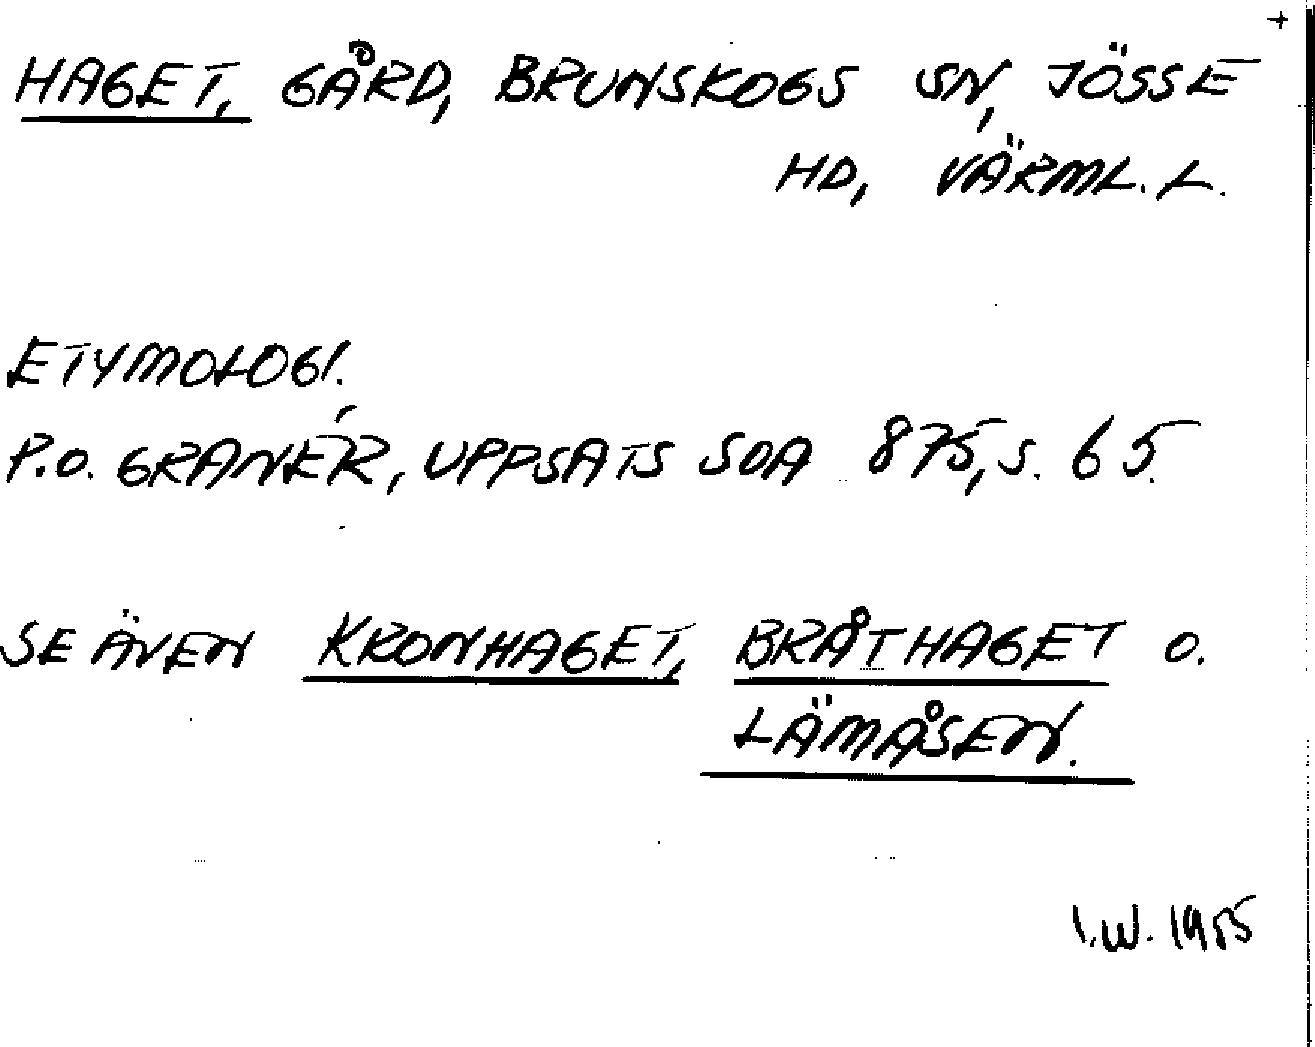 HAGET, GÅRD, BRUNSKOGS SN, JÖSSE
HD, VÄRML. L.
ETYMOLOGI.
P.O. GRANÉR, UPPSATS SOA 875, S. 65.
SE ÄVEN KRONHAGET, BRÅTHAGET O.
LÄMÅSEN.
I.W. 1955